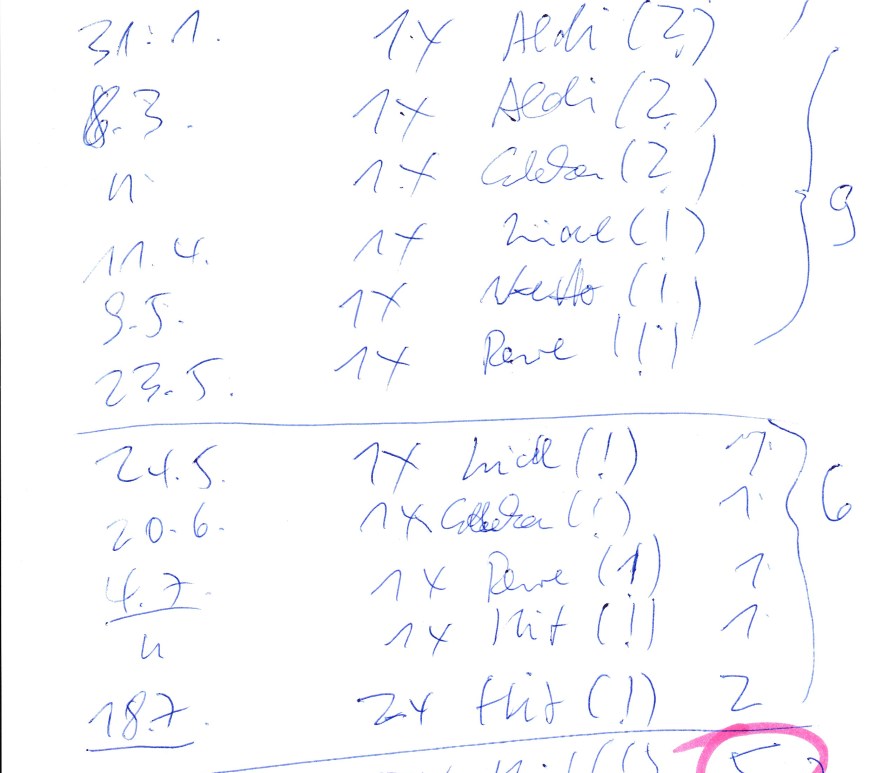 31.1. 1x Aldi (?)
8.3. 1x Aldi (?)
" 1x Edeka (?) 9
11.4. 1x Lidl (!)
9.5. 1x Netto (!)
23.5. 1x Rewe (!)
24.5. 1x Lidl (!) 1
20.6. 1x Edeka (!) 1 6
4.7. 1x Rewe (!) 1
" 1x Hit (!) 1
18.7. 2x Hit (!) 2
5